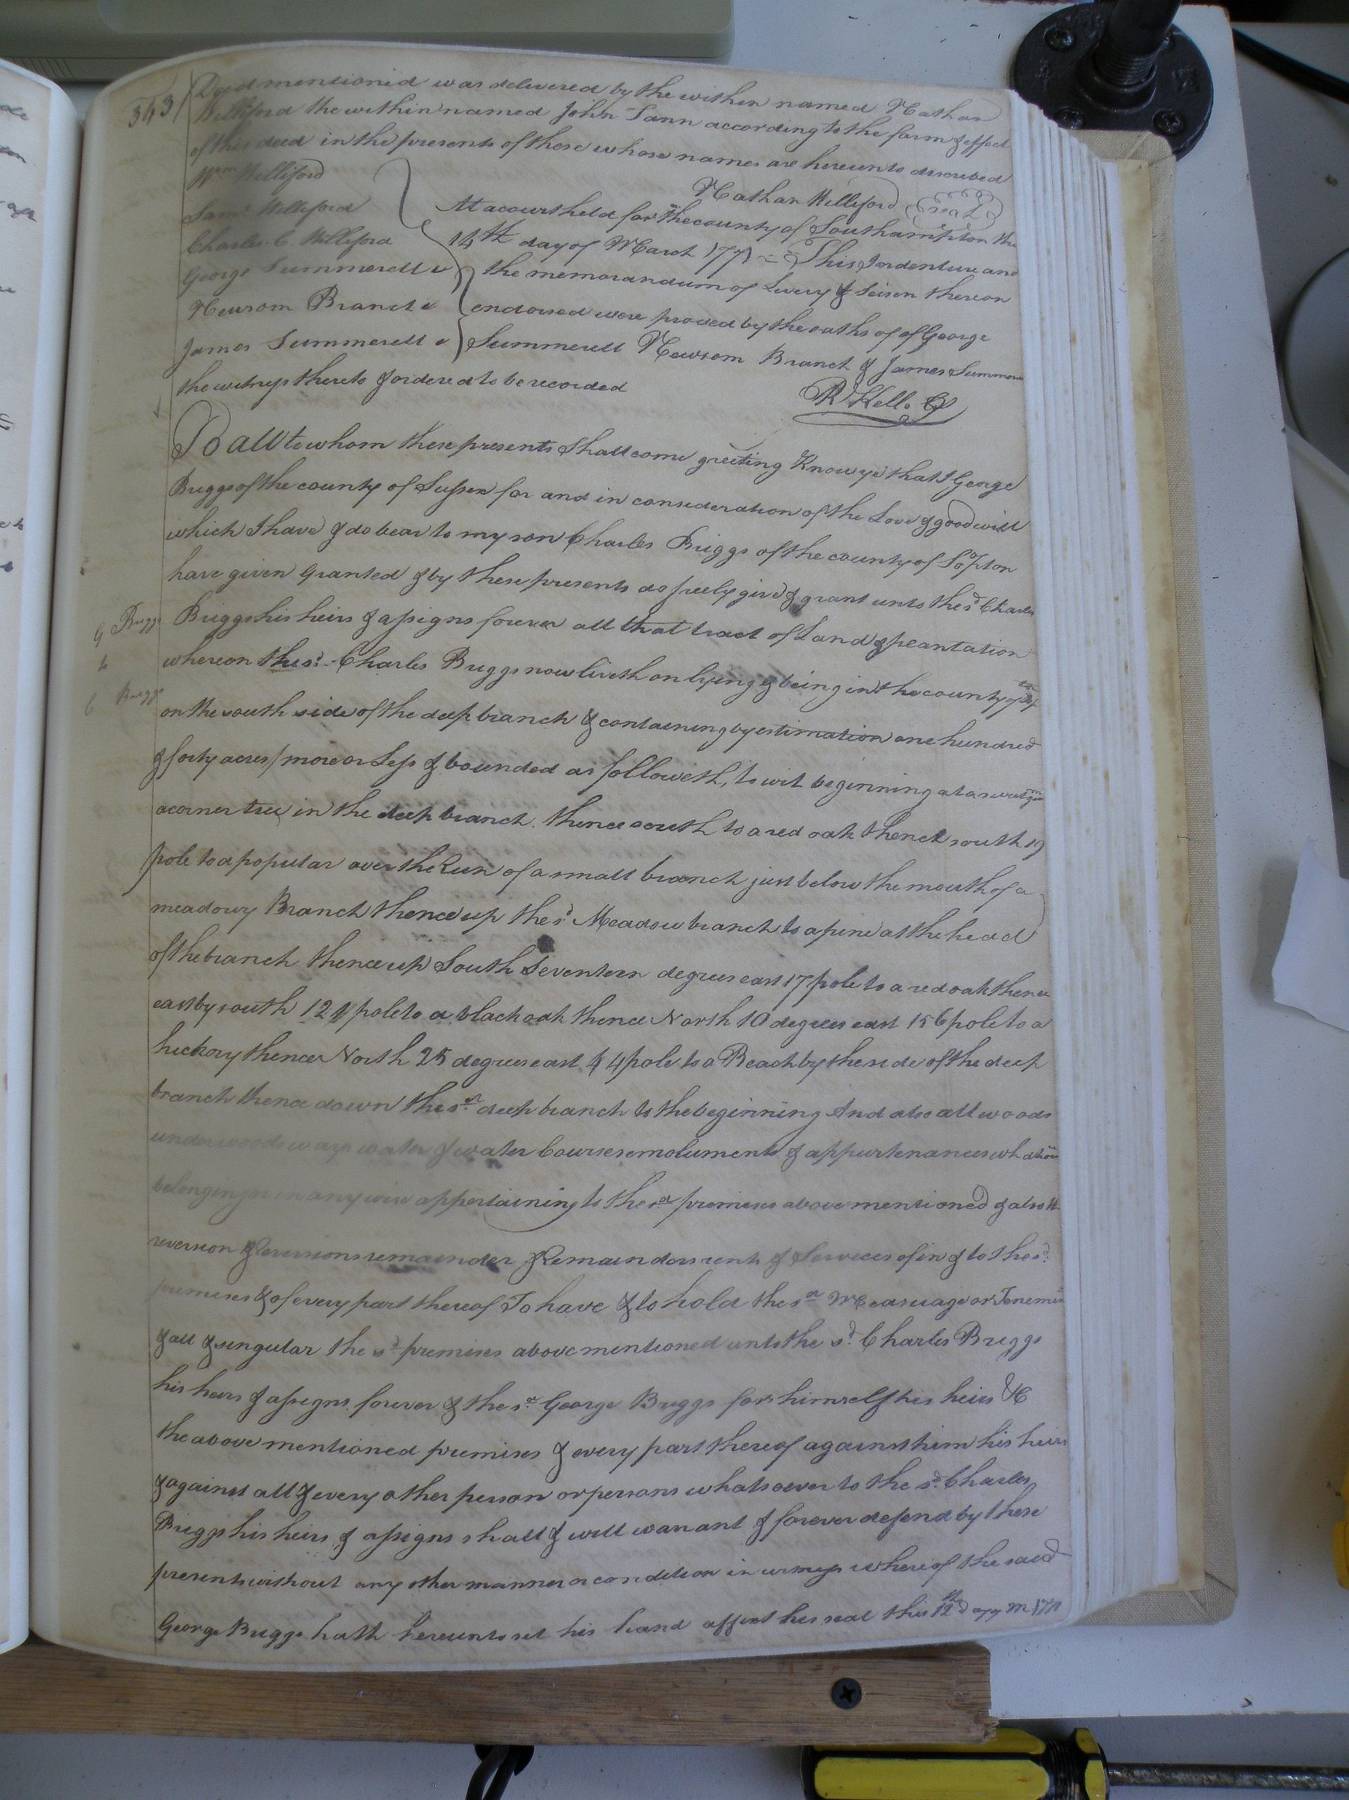 343
Deed mentioned was delivered by the within named Nathan
Williford the within named John Tann according to the form & effect
of this deed in the presents of those whose names are hereunto described
Wm Williford
Nathan Williford (seal)
Saml Williford
At a court held for the county of Southampton the
Charles C. Williford
14th day of March 1771 This Indenture and
George Summerell
the memorandum of Livery & Seisen thereon
Newsom Branch
endorsed were proved by the oaths of of George
James Summerell
Summerell Newsom Branch & James Summere
the witness thereto & ordered to be recorded
Rd Kello
To all to whom these presents Shall come greeting Know ye that I George
Briggs of the county of Sussex for and in consideration of the Love & good will
which I have & do bear to my son Charles Briggs of the county of Soton
have given Granted & by these presents do freely give & grant unto the sd Charles
Briggs his heirs & assigns forever all that tract of Land & pleantation
G Briggs
to
C Briggs
whereon the sd Charles Briggs now liveth on lying & being in the county of
on the south side of the deep branch & containing by estimation one hundred
& forty acres more or Less & bounded as followeth, to wit beginning at a
a corner tree in the deep branch thence south to a red oak thence south 19
pole to a popular over the Run of a small branch just below the mouth of a
meadowy Branch thence up the sd Meadow branch to a pine at the head
of the branch thence up South Seventeen degrees east 17 pole to a red oak thence
east by south 121 pole to a black oak thence North 10 degrees east 156 pole to a
hickory thence North 25 degrees east 44 pole to a Beach by the side of the deep
branch thence down the sd deep branch to the beginning And also all woods
underwoods ways water & water Courses emoluments & appurtenances
belonging or in any wise appertaining to the sd premises above mentioned & also
reversion & Reversions remainder & Remainders rents & Services of in & to the sd
premises & of every part thereof To have & to hold the sd Measuage or Tenemen
& all & singular the sd premises above mentioned unto the sd Charles Briggs
his heirs & assigns forever & the sd George Briggs for himself his heirs &C
the above mentioned premises & every part thereof against him his heirs
& against all & every other person or persons whatsoever to the sd Charles
Briggs his heirs & assigns shall & will warrant & forever defend by these
presents without any other manner or condition in witness whereof the said
George Briggs hath hereunto set his hand affixt his seal this 12th day